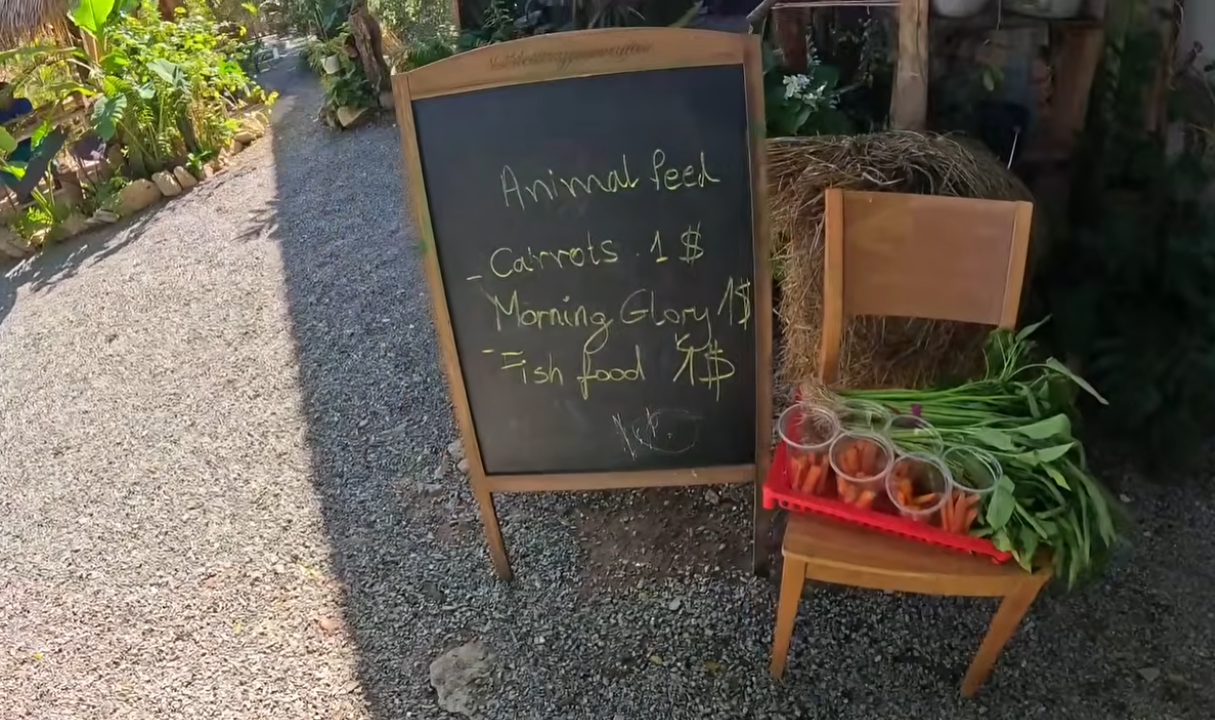 Animal feed
- Carrots 1 $
- Morning Glory 1$
- Fish food 1$